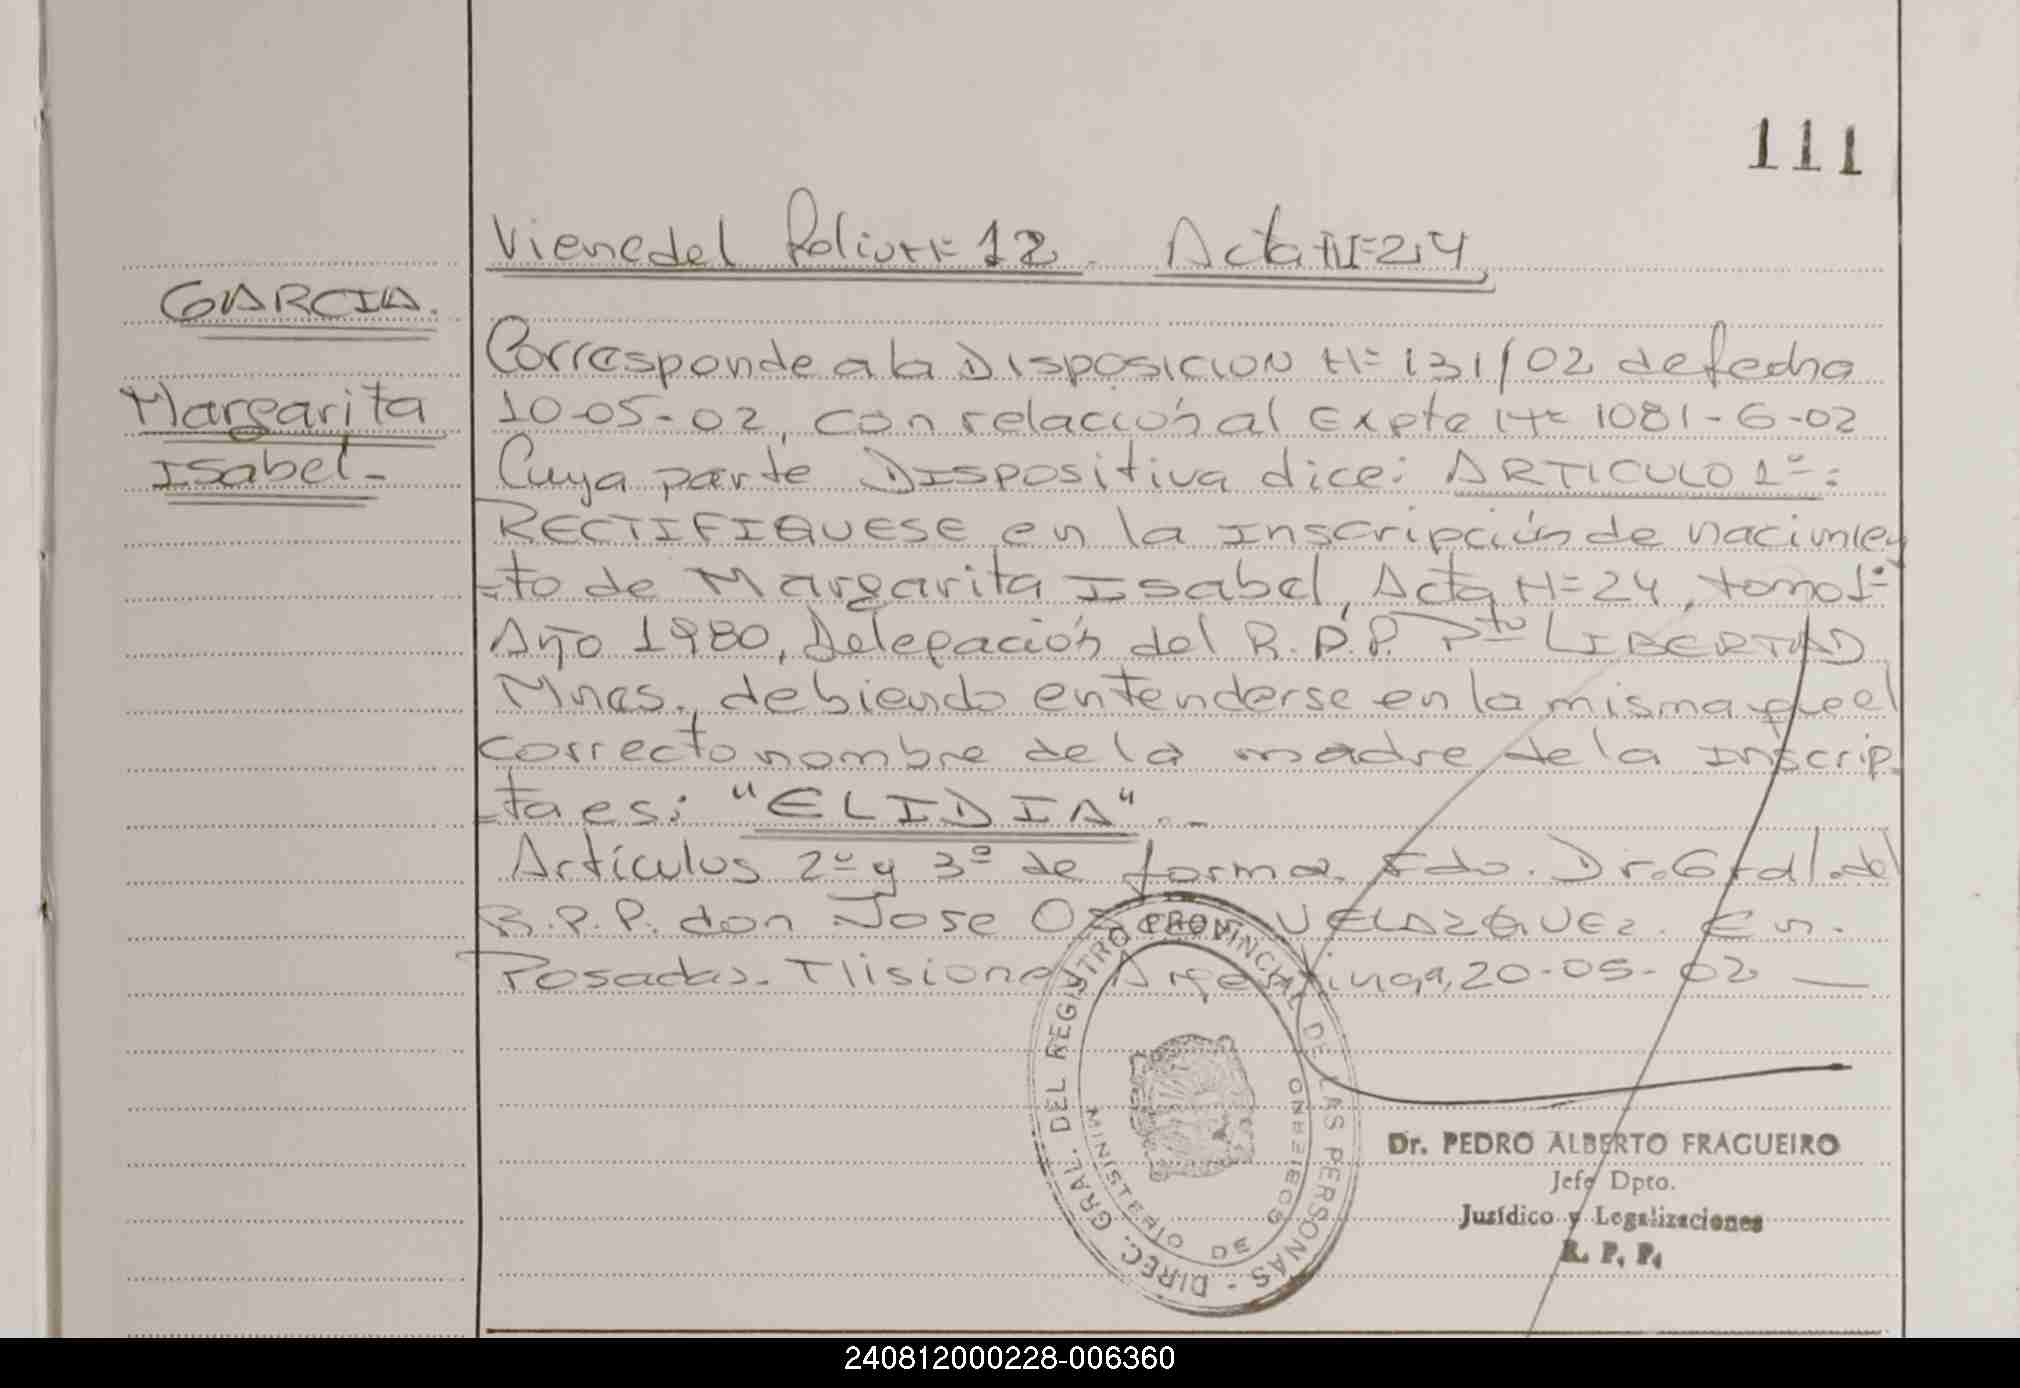 111
Viene del folio Nº 12. Acta Nº 24
GARCIA.
Margarita
Isabel-
Corresponde a la Disposicion Nº 131/02 de fecha
10-05-02, con relación al Expte Nº 1081-G-02
Cuya parte Dispositiva dice: ARTICULO 1º:
RECTIFIQUESE en la Inscripción de nacimien
-to de Margarita Isabel, Acta Nº 24, tomo 1º
Año 1980, Delegación del R.P.P. Pto LIBERTAD
Mnes., debiendo entenderse en la misma que el
correcto nombre de la madre de la Inscrip-
-ta es: "ELIDIA".-
Artículos 2º y 3º de forma. Fdo. Dr. Gral. del
R.P.P. don Jose VELAZQUEZ. En.
Posadas. Misiones Argentina, 20-05-02
DIREC. GRAL. DEL REGISTRO PROVINCIAL DE LAS PERSONAS -
MINISTERIO DE GOBIERNO
Dr. PEDRO ALBERTO FRAGUEIRO
Jefe Dpto.
Jurídico y Legalizaciones
R. P. P.
240812000228-006360